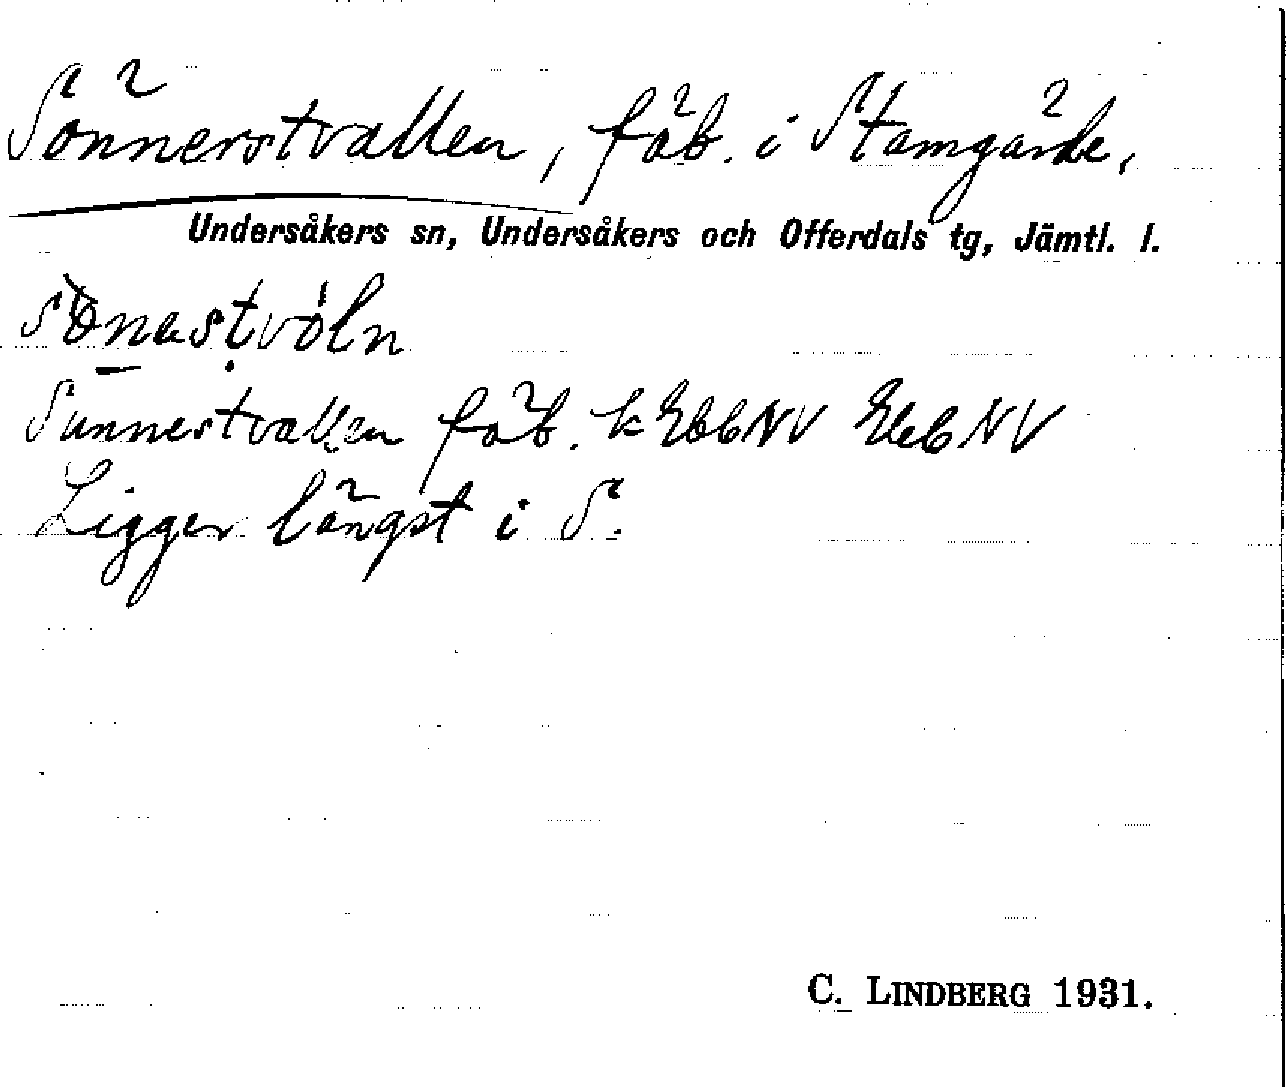 Sönnerstvallen, fäb. i Stamgärde,
Undersåkers sn, Undersåkers och Offerdals tg, Jämtl. l.
Sunnerstvallen fäb. k NV NV
Ligger längst i S.
C. LINDBERG 1931.